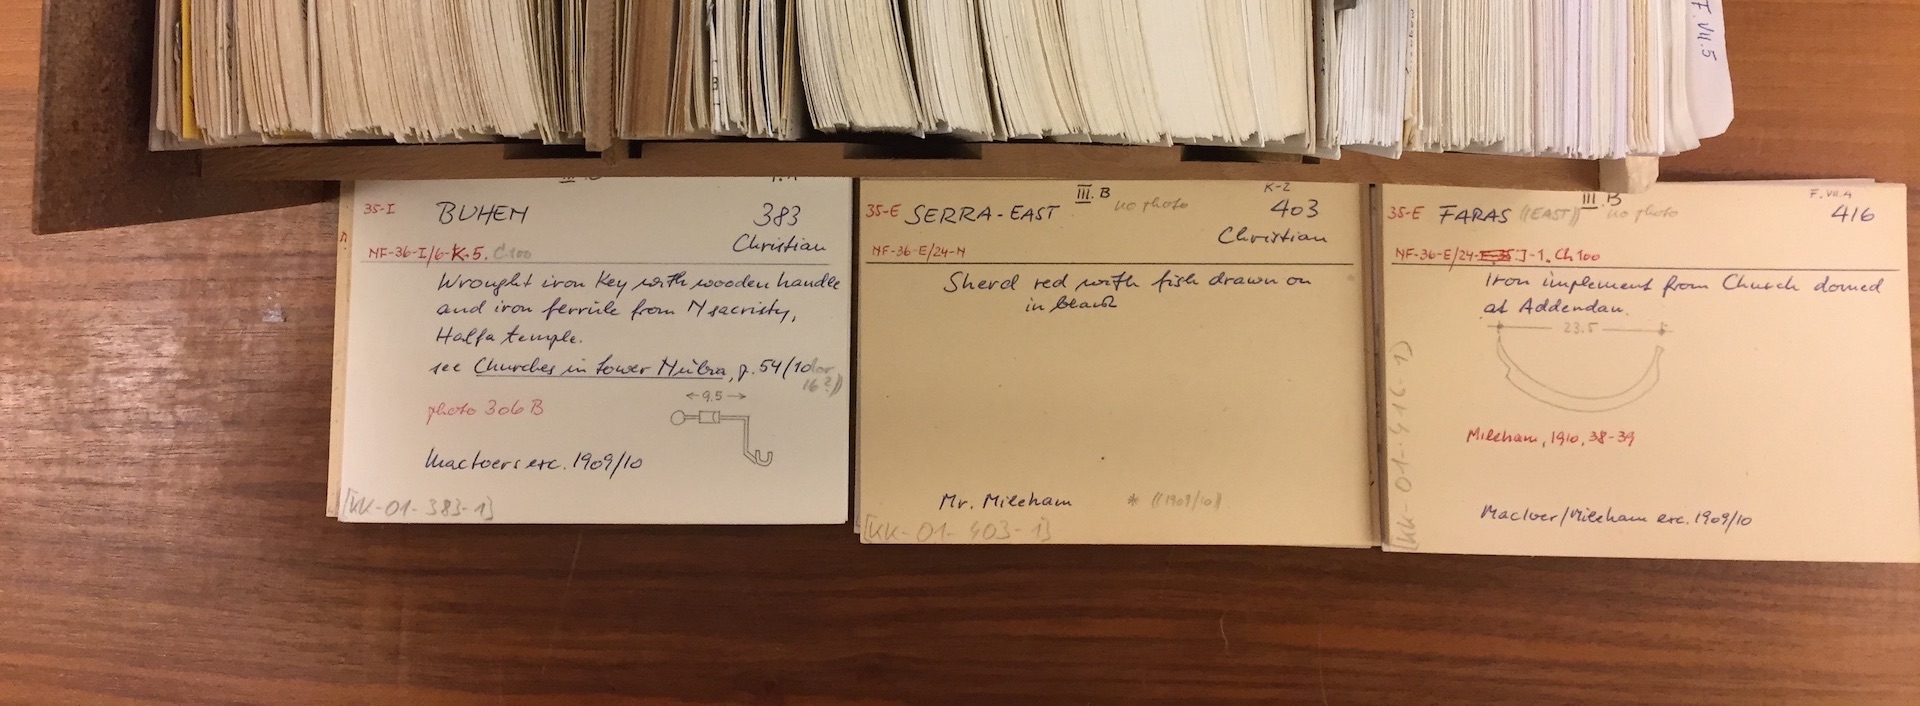 F.VII.5
35-I BUHEN 383
Christian
NF-36-I/6-K-5. C100
Wrought iron key with wooden handle
and iron ferrule from N sacristy,
Halfa temple.
see Churches in Lower Nubia, p. 54/10 (or
16?)
photo 306 B
← 9.5 →
MacIvers exc. 1909/10
[KK-01-383-1]
III. B K-2
35-E SERRA-EAST no photo 403
Christian
NF-36-E/24-N
Sherd red with fish drawn on
in black
Mr. Mileham * ((1909/10))
[KK-01-403-1]
III. B F.VII.4
35-E FARAS ((EAST)) no photo 416
NF-36-E/24- J-1. Ch 100
Iron implement from Church domed
at Addendan.
23.5
Mileham, 1910, 38-39
MacIver/Mileham exc. 1909/10
[KK-01-416-1]